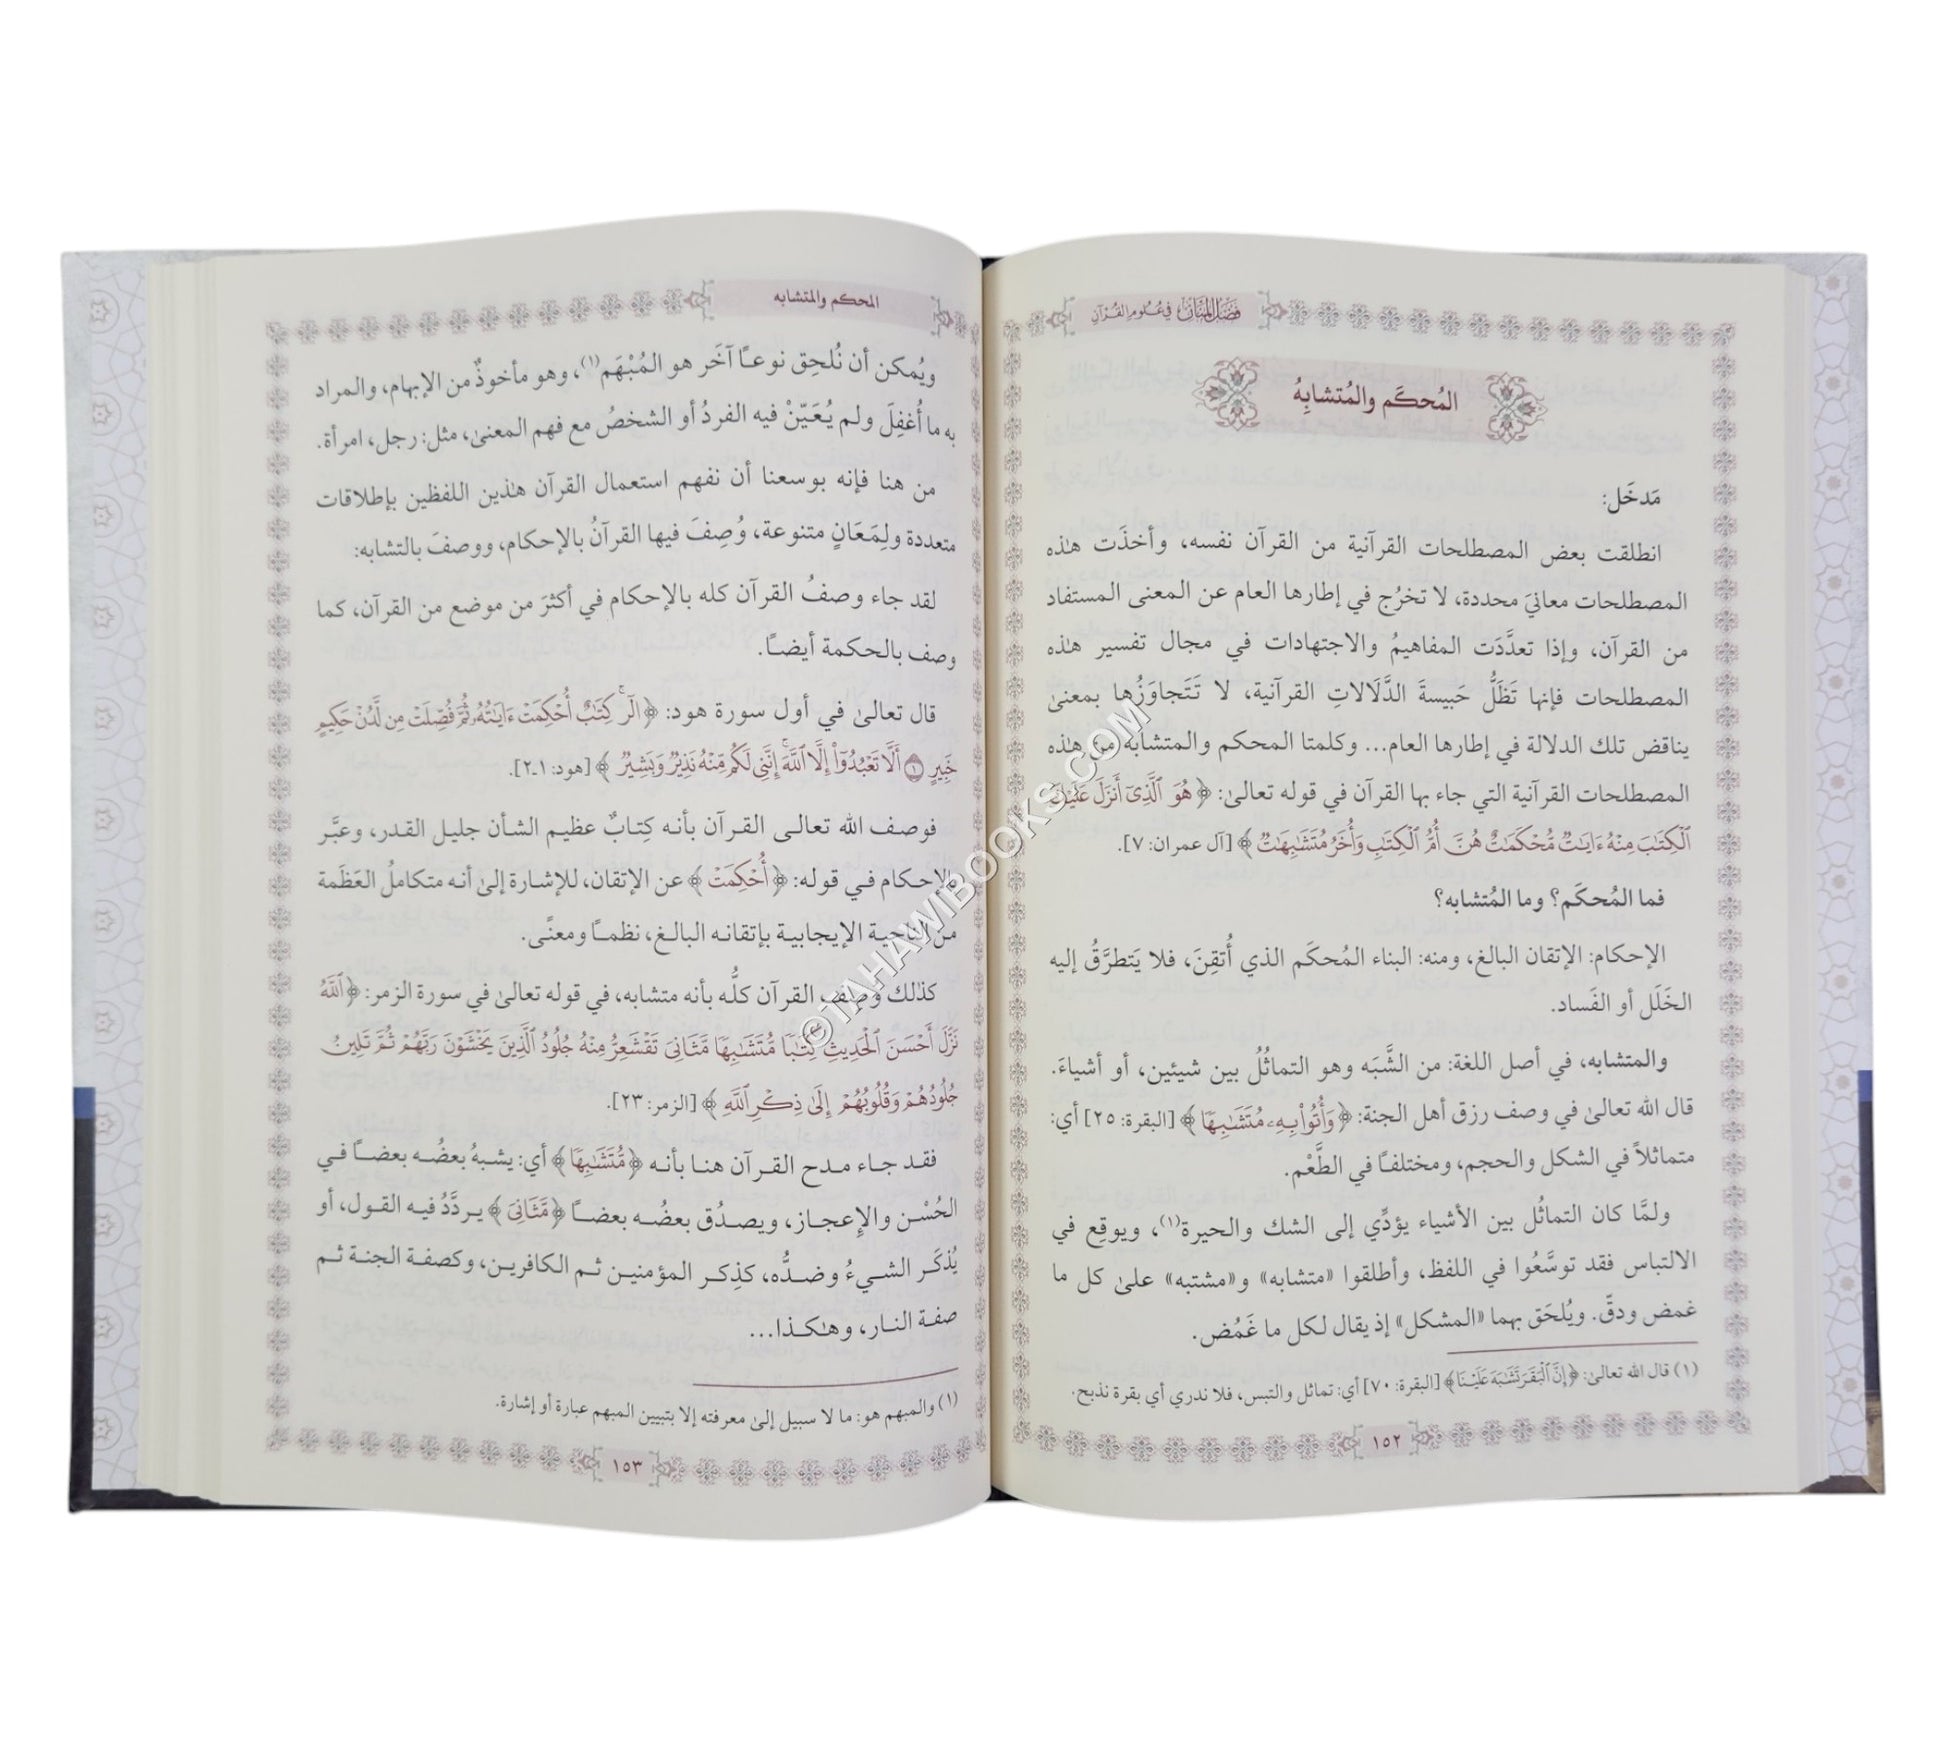 فضل المنان في علوم القرآن
المُحكَم والمُتشابِهُ
مَدخَل:
انطلقت بعض المصطلحات القرآنية من القرآن نفسه، وأخذَت هٰذه
المصطلحات معانيَ محددة، لا تخرُج في إطارها العام عن المعنى المستفاد
من القرآن، وإذا تعدَّدَت المفاهيمُ والاجتهادات في مجال تفسير هٰذه
المصطلحات فإنها تَظَلُّ حَبيسةَ الدَّلَالاتِ القرآنية، لا تَتَجاوَزُها بمعنىٰ
يناقض تلك الدلالة في إطارها العام... وكلمتا المحكم والمتشابه من هٰذه
المصطلحات القرآنية التي جاء بها القرآن في قوله تعالىٰ: ﴿هُوَ ٱلَّذِىٓ أَنزَلَ عَلَيْكَ
ٱلْكِتَٰبَ مِنْهُ ءَايَٰتٌ مُّحْكَمَٰتٌ هُنَّ أُمُّ ٱلْكِتَٰبِ وَأُخَرُ مُتَشَٰبِهَٰتٌ﴾ [آل عمران: ٧].
فما المُحكَم؟ وما المُتشابه؟
الإحكام: الإتقان البالغ، ومنه: البناء المُحكَم الذي أُتقِنَ، فلا يَتطرَّقُ إليه
الخَلَل أو الفَساد.
والمتشابه، في أصل اللغة: من الشَّبَه وهو التماثُلُ بين شيئين، أو أشياءَ.
قال الله تعالىٰ في وصف رزق أهل الجنة: ﴿وَأُتُوا۟ بِهِۦ مُتَشَٰبِهًا﴾ [البقرة: ٢٥] أي:
متماثلاً في الشكل والحجم، ومختلفًا في الطَّعْم.
ولمَّا كان التماثُل بين الأشياء يؤدِّي إلى الشك والحيرة(١)، ويوقِع في
الالتباس فقد توسَّعُوا في اللفظ، وأطلقوا «متشابه» و«مشتبه» علىٰ كل ما
غمض ودقّ. ويُلحَق بهما «المشكل» إذ يقال لكل ما غَمُض.
(١) قال الله تعالىٰ: ﴿إِنَّ ٱلْبَقَرَ تَشَٰبَهَ عَلَيْنَا﴾ [البقرة: ٧٠] أي: تماثل والتبس، فلا ندري أي بقرة نذبح.
١٥٢
المحكم والمتشابه
ويُمكن أن نُلحِق نوعًا آخَر هو المُبْهَم(١)، وهو مأخوذٌ من الإبهام، والمراد
به ما أُغفِلَ ولم يُعَيّنْ فيه الفردُ أو الشخصُ مع فهم المعنىٰ، مثل: رجل، امرأة.
من هنا فإنه بوسعنا أن نفهم استعمال القرآن هٰذين اللفظين بإطلاقات
متعددة ولِمَعَانٍ متنوعة، وُصِفَ فيها القرآنُ بالإحكام، ووصفَ بالتشابه:
لقد جاء وصفُ القرآن كله بالإحكام في أكثرَ من موضع من القرآن، كما
وصف بالحكمة أيضًا.
قال تعالىٰ في أول سورة هود: ﴿الٓر ۚ كِتَٰبٌ أُحْكِمَتْ ءَايَٰتُهُۥ ثُمَّ فُصِّلَتْ مِن لَّدُنْ حَكِيمٍ
خَبِيرٍ ۝١ أَلَّا تَعْبُدُوٓا۟ إِلَّا ٱللَّهَ ۚ إِنَّنِى لَكُم مِّنْهُ نَذِيرٌ وَبَشِيرٌ﴾ [هود: ١-٢].
فوصف الله تعالى القرآن بأنه كِتابٌ عظيم الشأن جليل القدر، وعبَّر
بالإحكام في قوله: ﴿أُحْكِمَتْ﴾ عن الإتقان، للإشارة إلىٰ أنه متكاملُ العَظَمة
من الناحية الإيجابية بإتقانه البالغ، نظمًا ومعنًى.
كذٰلك وُصِف القرآن كلُّه بأنه متشابه، في قوله تعالىٰ في سورة الزمر: ﴿ٱللَّهُ
نَزَّلَ أَحْسَنَ ٱلْحَدِيثِ كِتَٰبًا مُّتَشَٰبِهًا مَّثَانِىَ تَقْشَعِرُّ مِنْهُ جُلُودُ ٱلَّذِينَ يَخْشَوْنَ رَبَّهُمْ ثُمَّ تَلِينُ
جُلُودُهُمْ وَقُلُوبُهُمْ إِلَىٰ ذِكْرِ ٱللَّهِ﴾ [الزمر: ٢٣].
فقد جاء مدح القرآن هنا بأنه ﴿مُّتَشَٰبِهًا﴾ أي: يشبهُ بعضُه بعضًا في
الحُسْن والإعجاز، ويصدُق بعضُه بعضًا ﴿مَّثَانِىَ﴾ يردَّدُ فيه القول، أو
يُذكَر الشيءُ وضدُّه، كذِكر المؤمنين ثم الكافرين، وكصفة الجنة ثم
صفة النار، وهٰكذا...
(١) والمبهم هو: ما لا سبيل إلىٰ معرفته إلا بتبيين المبهم عبارة أو إشارة.
١٥٣
©TAHAWIBOOKS.COM